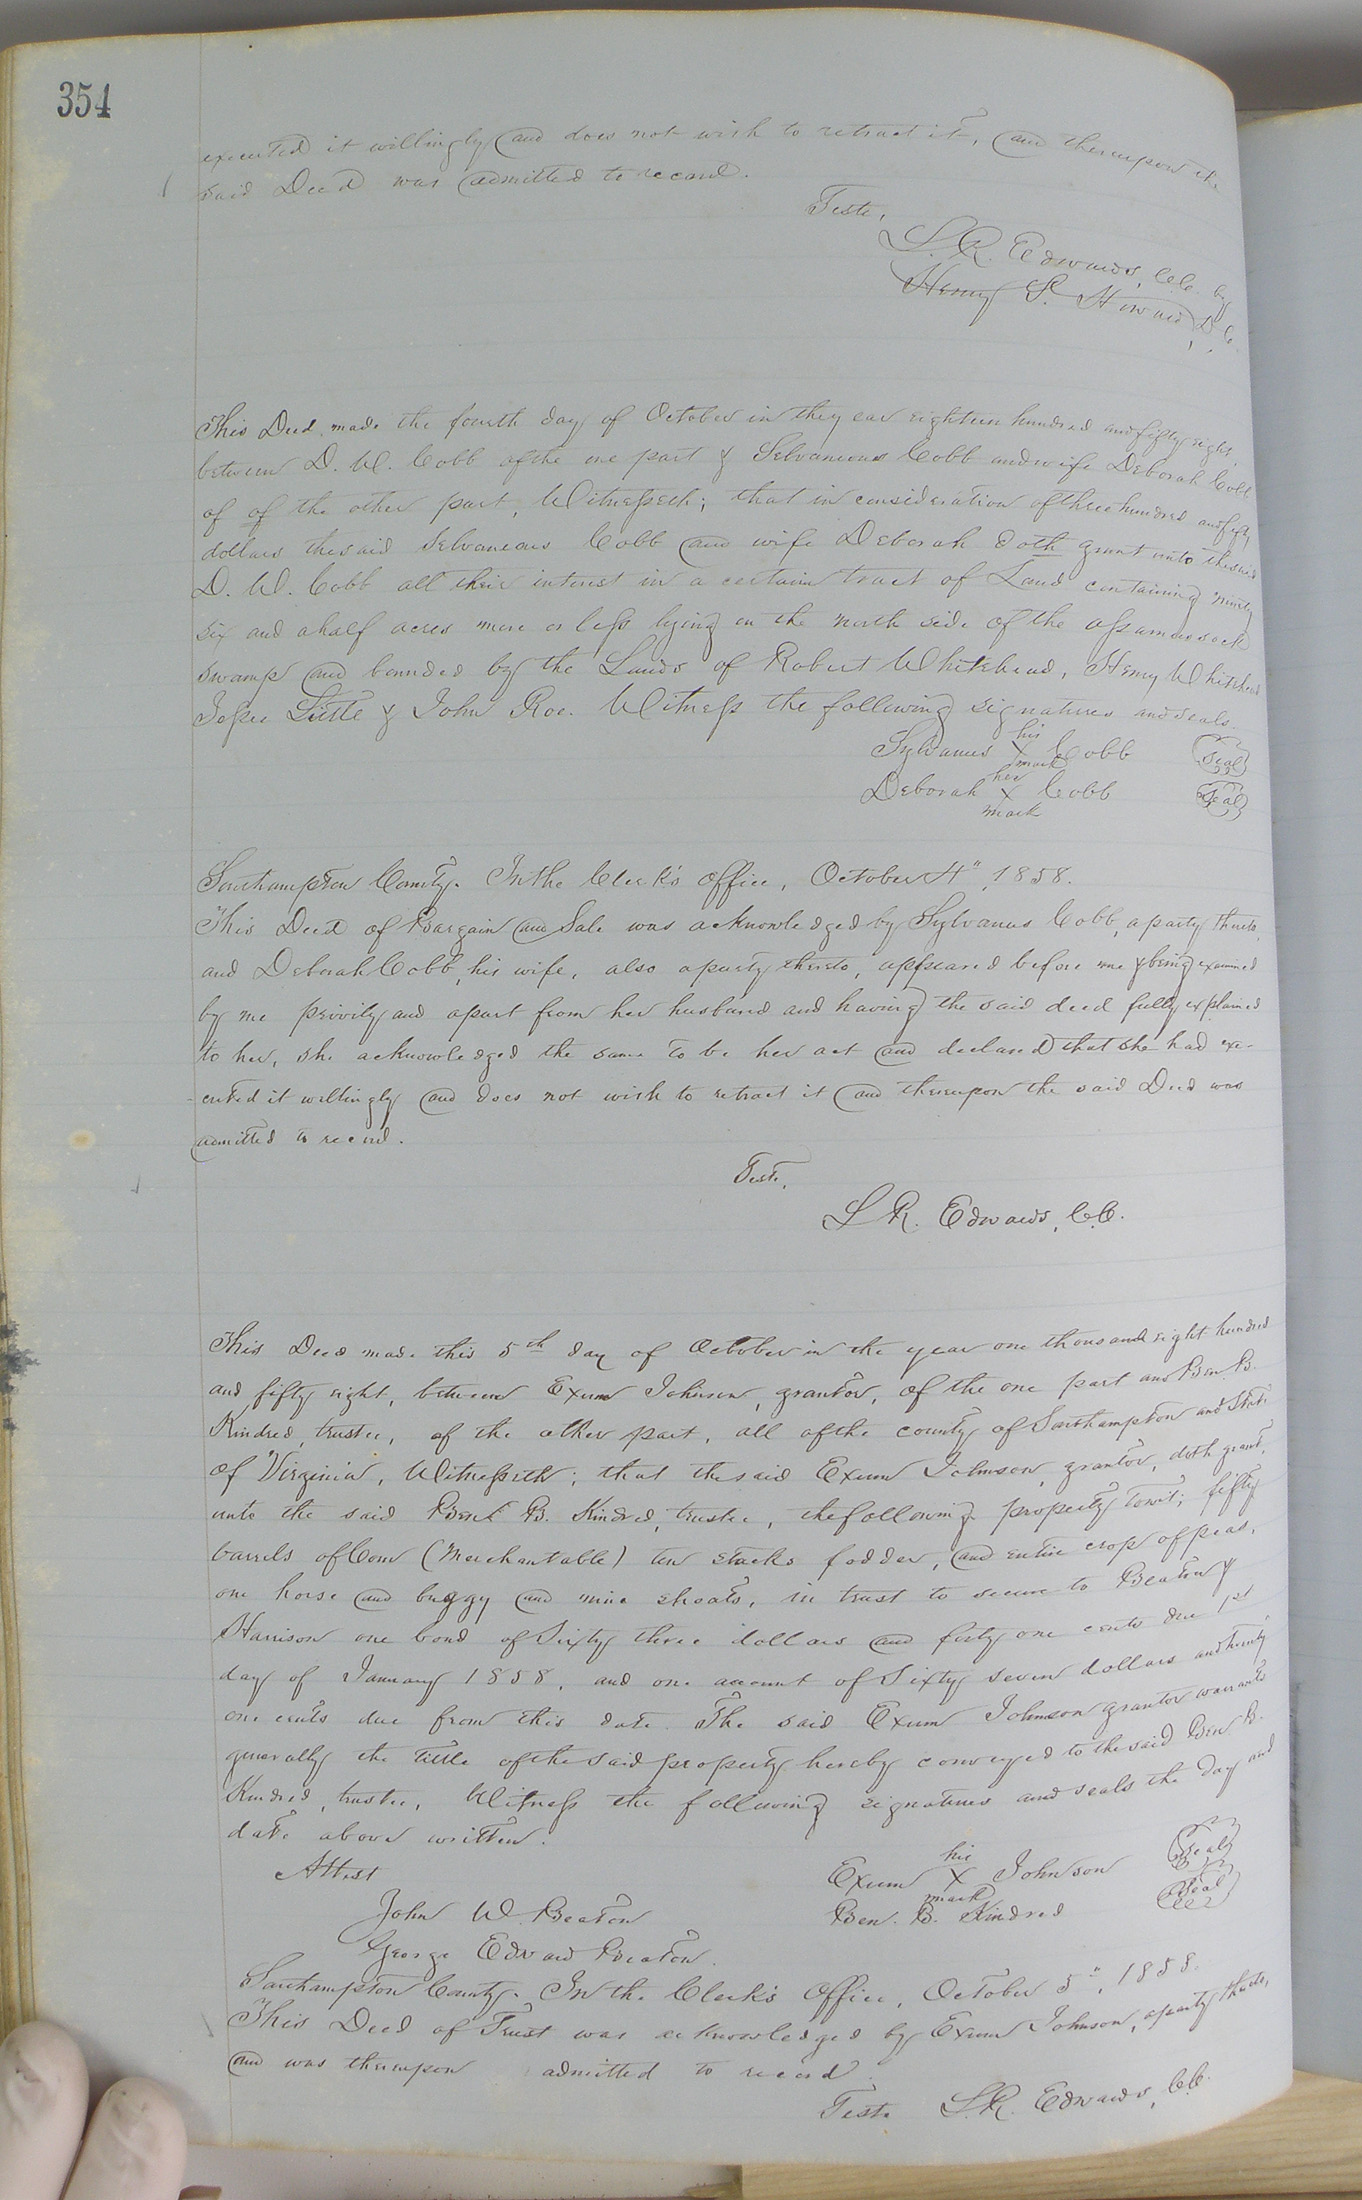 354
executed it willingly and does not wish to retract it, and thereupon the
said Deed was admitted to record.
Teste,
L. R. Edwards, C.C. by
Henry S. Howard, D.C.
This Deed made the fourth day of October in they ear eighteen hundred and fifty eight,
between D. W. Cobb of the one part & Selvaneous Cobb and wife Deborah Cobb
of of the other part, Witnesseth; that in consideration of three hundred and fifty
dollars the said Selvaneous Cobb and wife Deborah doth grant unto the said
D. W. Cobb all their interest in a certain tract of Land containing ninety
six and a half acres more or less lying on the north side of the assamoosock
swamp and bounded by the Lands of Robert Whitehead, Henry Whitehead
Jesse Little & John Roe. Witness the following signatures and seals.
Sylvanus his X mark Cobb (Seal)
Deborah her X mark Cobb (Seal)
Southampton County. In the Clerk's office, October 4", 1858.
This Deed of Bargain and Sale was acknowledged by Sylvanus Cobb, a party thereto,
and Deborah Cobb, his wife, also a party thereto, appeared before me & being examined
by me privily and apart from her husband and having the said deed fully explained
to her, she acknowledged the same to be her act and declared that she had exe-
cuted it willingly and does not wish to retract it and thereupon the said Deed was
admitted to record.
Teste,
L R. Edwards, C.C.
This Deed made this 5th day of October in the year one thousand eight hundred
and fifty eight, between Exum Johnson, grantor, of the one part and Ben. B.
Kindred, trustee, of the other part, all of the county of Southampton and State
of Virginia, Witnesseth; that the said Exum Johnson, grantor, doth grant,
unto the said Ben. B. Kindred, trustee, the following property towit; fifty
barrels of Corn (Merchantable) ten stacks fodder, and entire crop of peas,
one horse and buggy and nine shoats, in trust to secure to Beaton &
Harrison one bond of Sixty three dollars and forty one cents due 1st
day of January 1858, and one account of Sixty seven dollars and twenty
one cents due from this date. The said Exum Johnson grantor warrants
generally the tittle of the said property hereby conveyed to the said Ben B.
Kindred, trustee, Witness the following signatures and seals the day and
date above written.
Attest
Exum his X mark Johnson (Seal)
John W. Beaton
Ben. B. Kindred (Seal)
George Edward Beaton.
Southampton County. In the Clerk's Office, October 5", 1858.
This Deed of Trust was acknowledged by Exum Johnson, a party thereto,
and was thereupon admitted to record.
Teste L.R. Edwards, C.C.